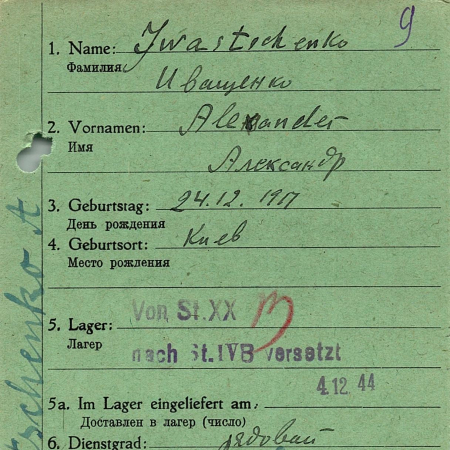 9
1. Name: Iwastschenko
Фамилия Иващенко
2. Vornamen: Alexander
Имя
Александр
3. Geburtstag: 24.12. 1917
День рождения
4. Geburtsort: Киев
Место рождения
Von St.XX
5. Lager:
Лагер
nach St.IVB versetzt
4.12.44
5a. Im Lager eingeliefert am:
Доставлен в лагер (число)
6. Dienstgrad: рядовой